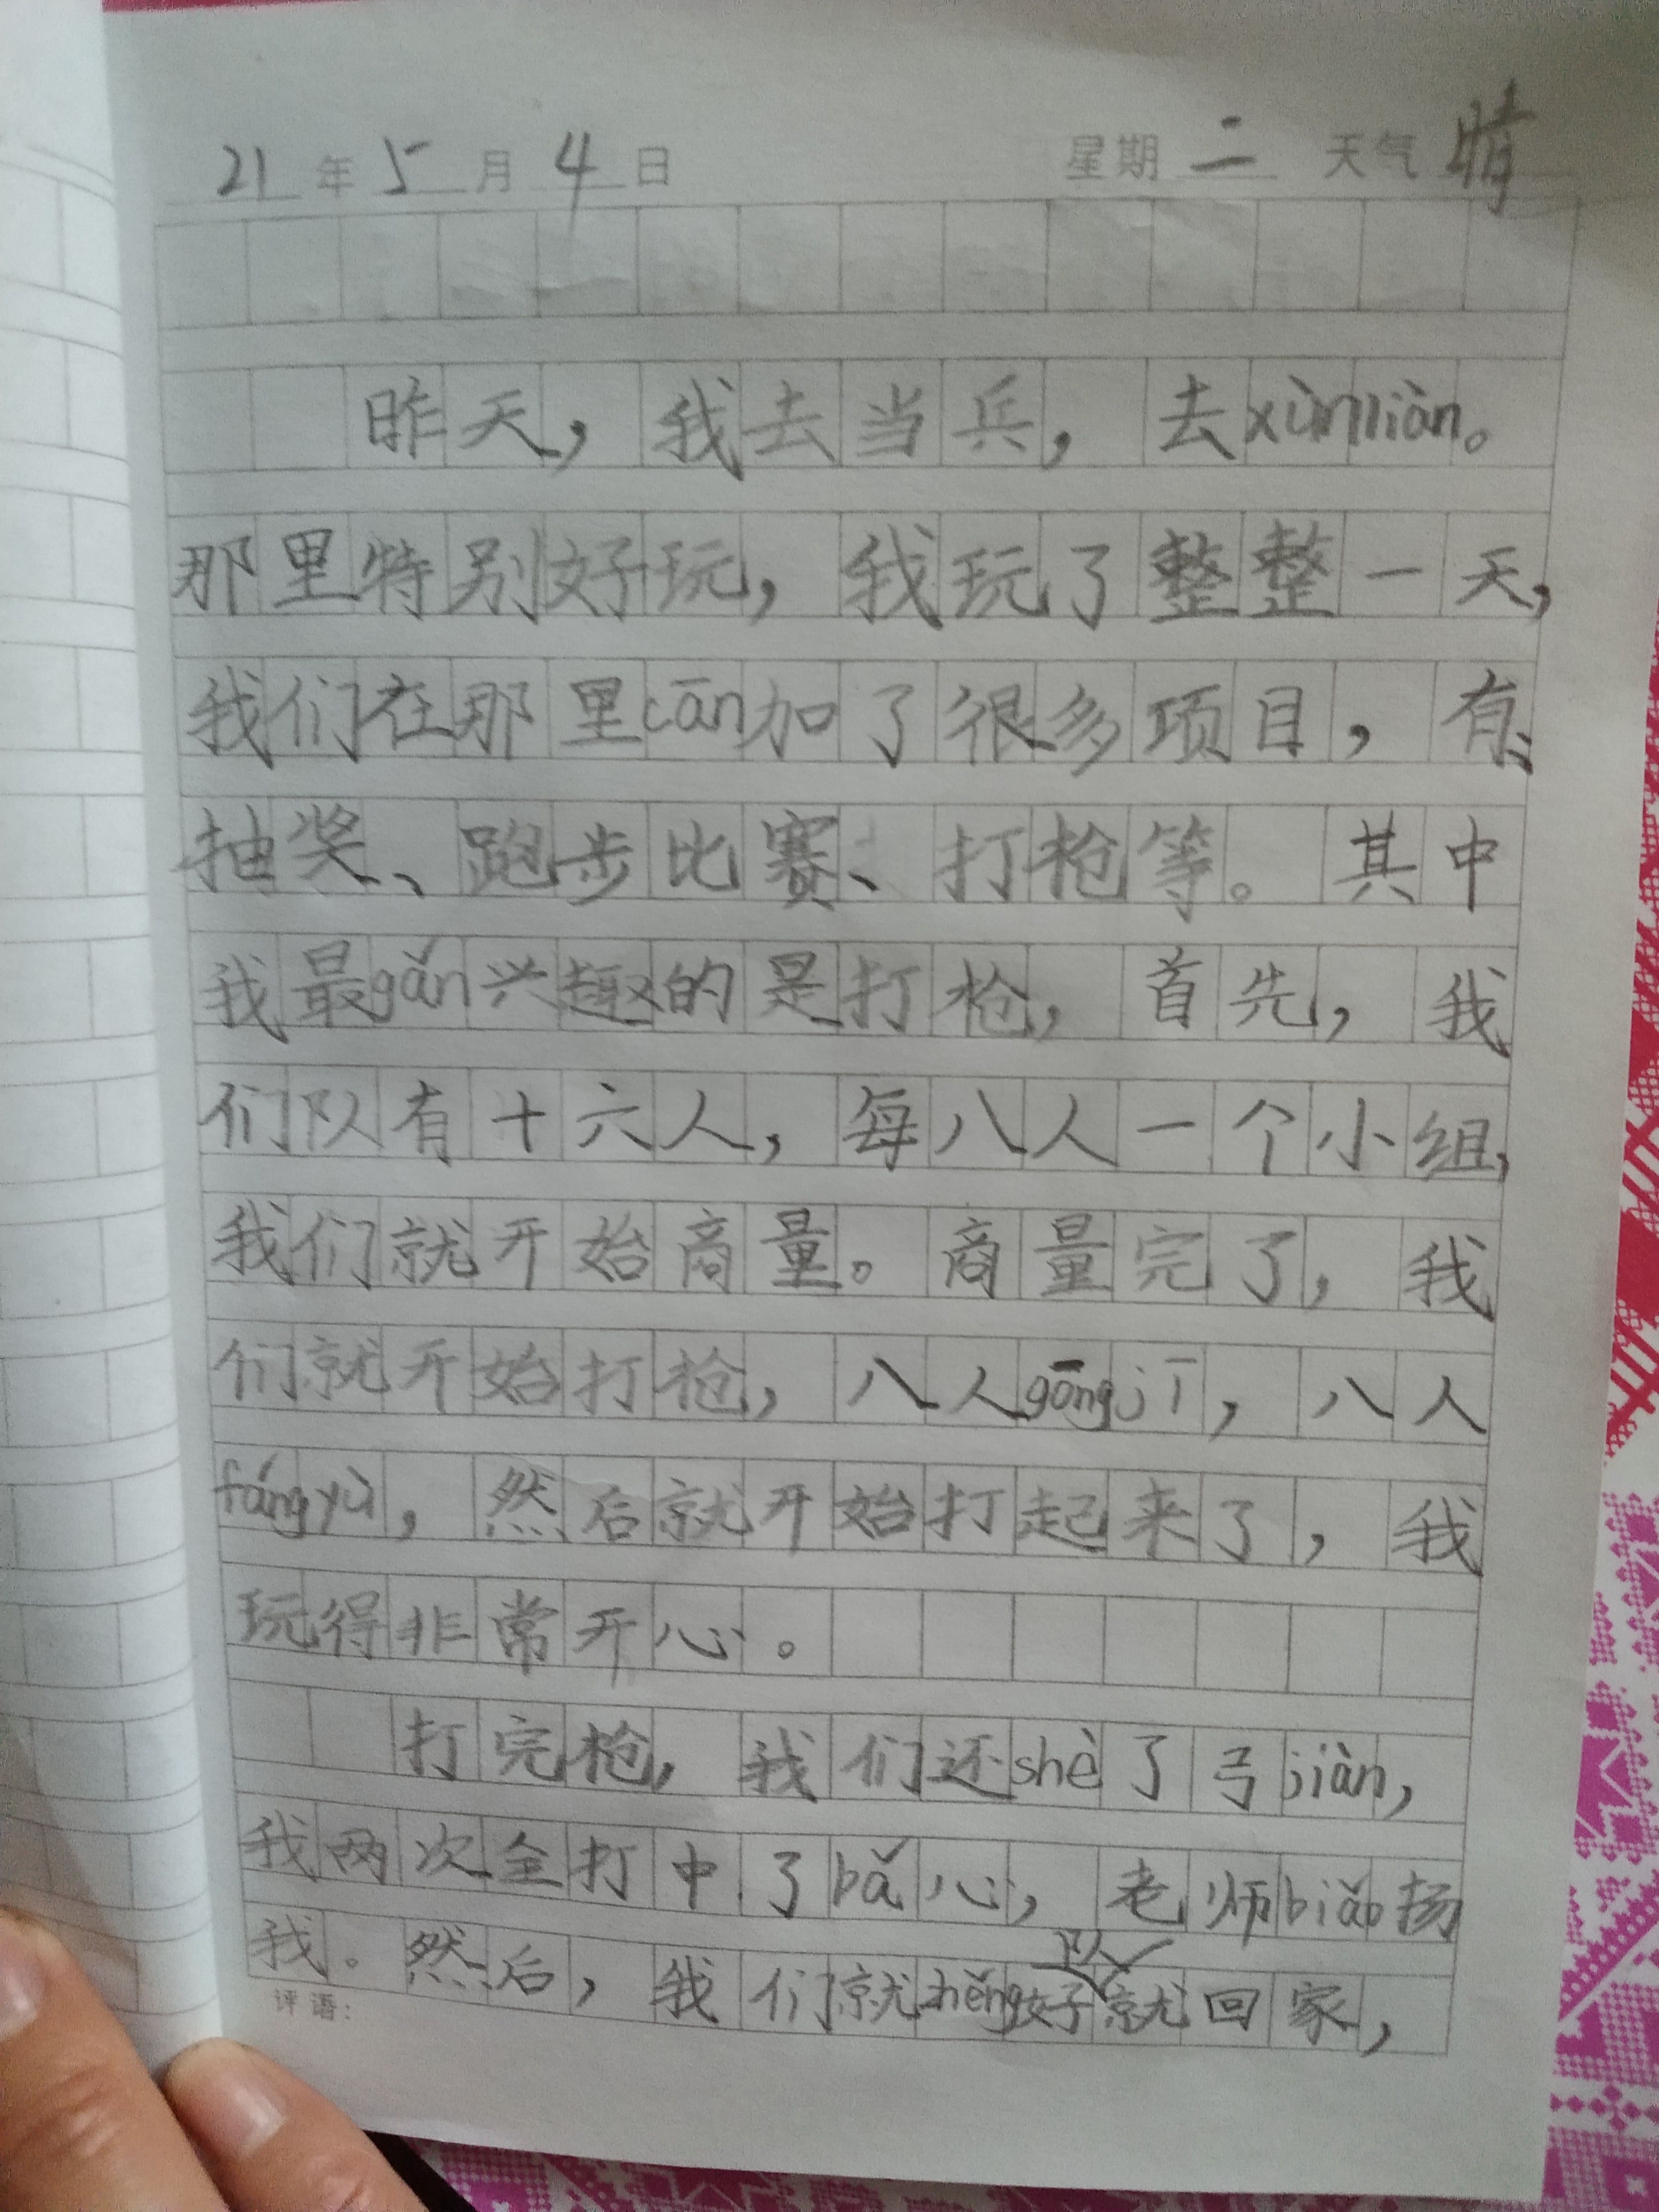 21年5月4日 星期二 天气晴
昨天，我去当兵，去xùnliàn。
那里特别好玩，我玩了整整一天，
我们在那里cān加了很多项目，有：
抽奖、跑步比赛、打枪等。其中
我最gǎn兴趣的是打枪，首先，我
们队有十六人，每八人一个小组，
我们就开始商量。商量完了，我
们就开始打枪，八人gōngjī，八人
fángyù，然后就开始打起来了，我
玩得非常开心。
打完枪，我们还shè了弓jiàn，
我两次全打中了bǎ心，老师biǎo扬
我。然后，我们就zhěng好队就回家，
评语：